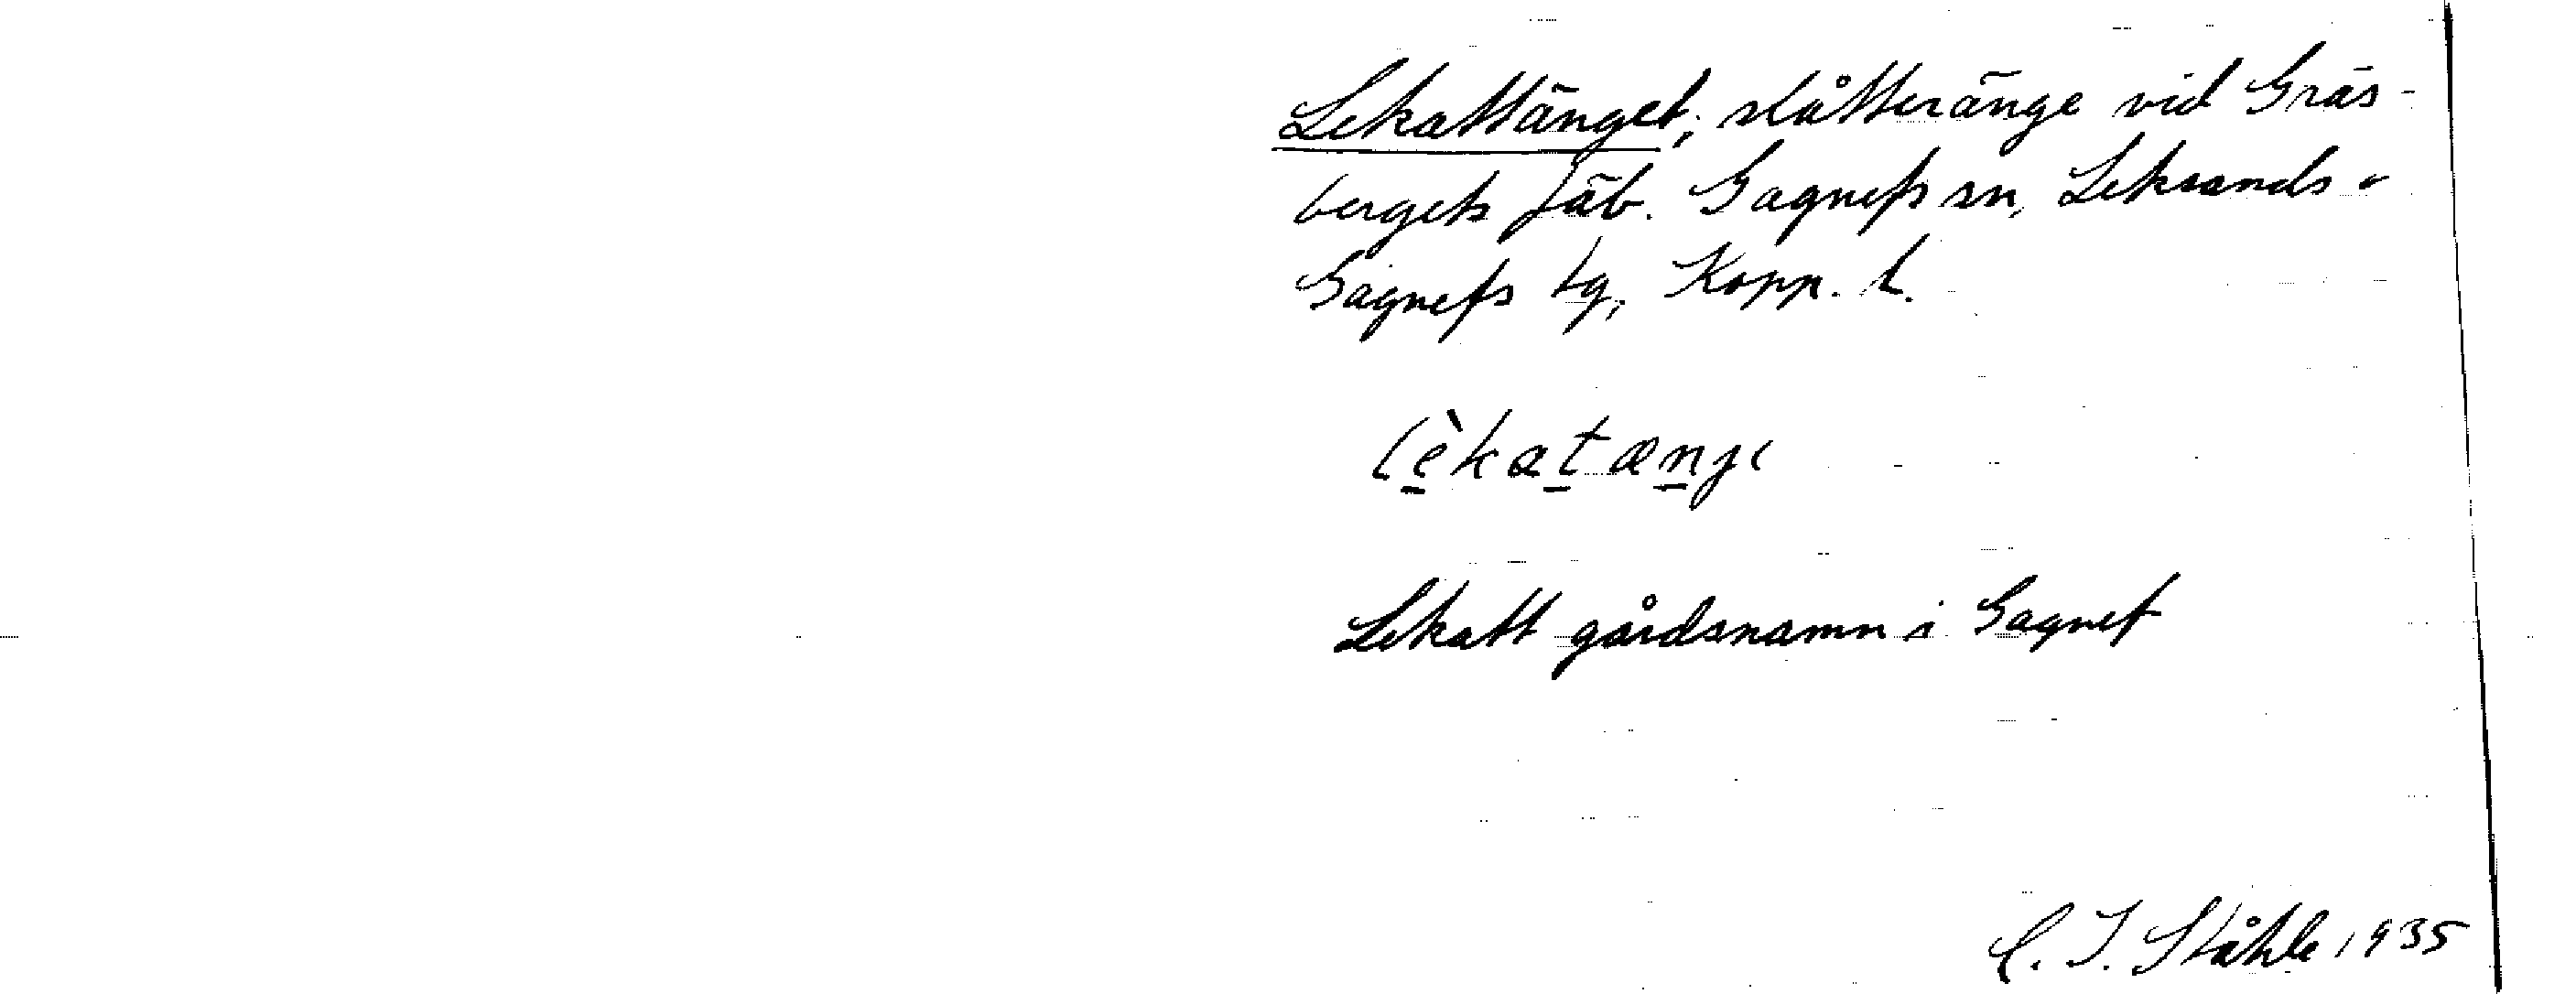 Lekattänget; slåtteränge vid Gräs-
bergets fäb. Gagnefs sn, Leksands o
Gagnefs tg, Kopp. l.
lèkatænjı
Lekatt gårdsnamn i Gagnef
C. I. Ståhle 1935